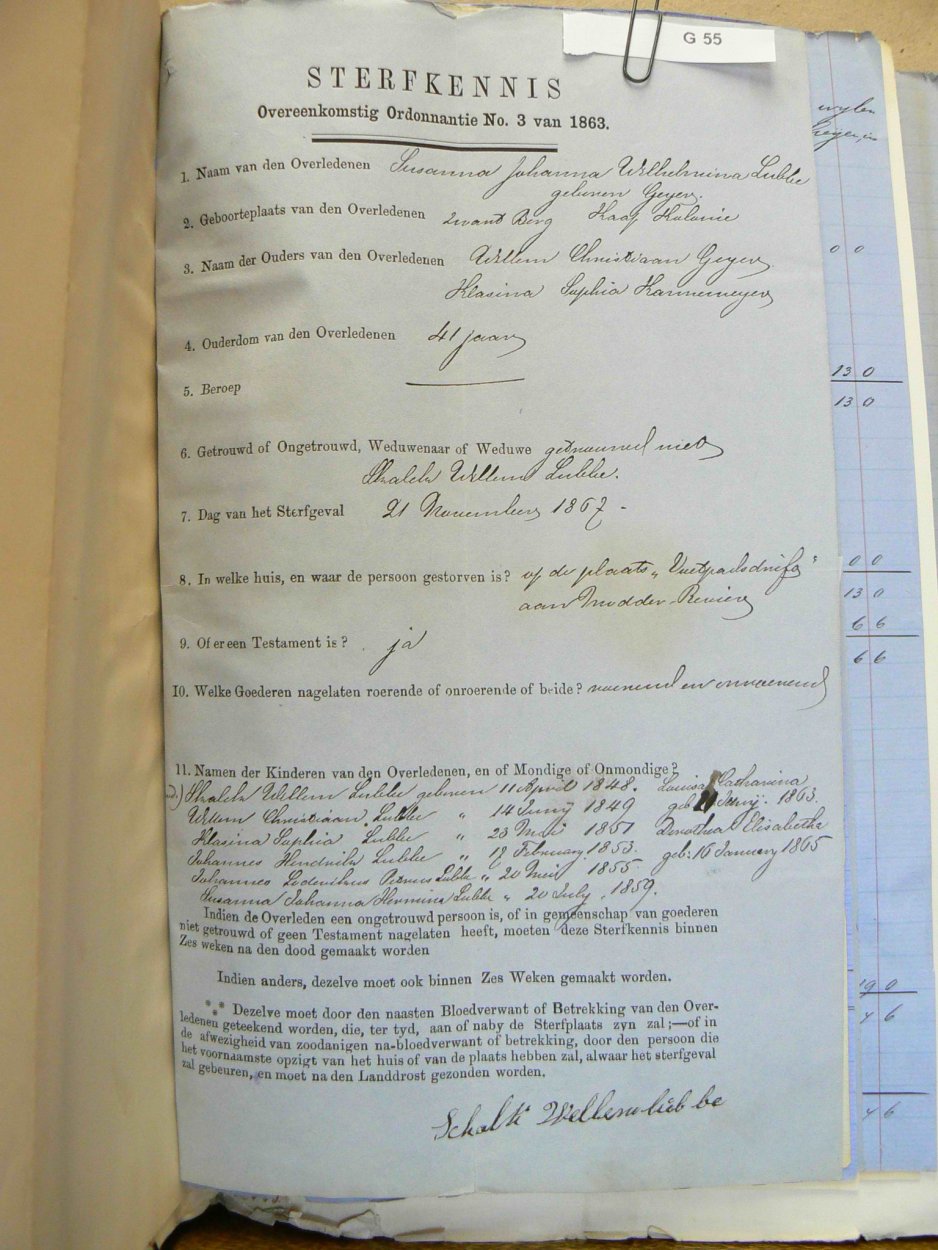 G 55
STERFKENNIS
Overeenkomstig Ordonnantie No. 3 van 1863.
1. Naam van den Overledenen Susanna Johanna Wilhelmina Lubbe
geboren Geyer.
2. Geboorteplaats van den Overledenen Zwart Berg Kaap Kolonie
3. Naam der Ouders van den Overledenen Willem Christiaan Geyer
Klasina Sophia Hannemeyer
4. Ouderdom van den Overledenen 41 jaar
5. Beroep
6. Getrouwd of Ongetrouwd, Weduwenaar of Weduwe getrouwd met
Schalck Willem Lubbe.
7. Dag van het Sterfgeval 21 November 1867 -
8. In welke huis, en waar de persoon gestorven is? op de plaats „Voetpadsdrift"
aan Modder-Revier
9. Of er een Testament is? ja
10. Welke Goederen nagelaten roerende of onroerende of beide? roerend en onroerend
11. Namen der Kinderen van den Overledenen, en of Mondige of Onmondige?
Schalck Willem Lubbe geboren 11 April 1848. Louisa Catharina
Willem Christiaan Lubbe „ 14 Junij 1849 geb 1863.
Klasina Sophia Lubbe „ 23 Mei 1851 Dorothea Elisabetha
Johannes Hendrik Lubbe „ February 1853. geb: 16 January 1865
Johannes Lodevikus Petrus Lubbe „ 20 Meij 1855
Susanna Johanna Hermina Lubbe „ 20 July. 1859.
Indien de Overleden een ongetrouwd persoon is, of in gemeenschap van goederen
niet getrouwd of geen Testament nagelaten heeft, moeten deze Sterfkennis binnen
Zes weken na den dood gemaakt worden
Indien anders, dezelve moet ook binnen Zes Weken gemaakt worden.
*** Dezelve moet door den naasten Bloedverwant of Betrekking van den Over-
ledenen geteekend worden, die, ter tyd, aan of naby de Sterfplaats zyn zal;—of in
de afwezigheid van zoodanigen na-bloedverwant of betrekking, door den persoon die
het voornaamste opzigt van het huis of van de plaats hebben zal, alwaar het sterfgeval
zal gebeuren, en moet na den Landdrost gezonden worden.
Schalk Willem lubbe
wylen
0 0
13 0
13 0
0 0
13 0
6 6
6 6
19 0
4 6
4 6